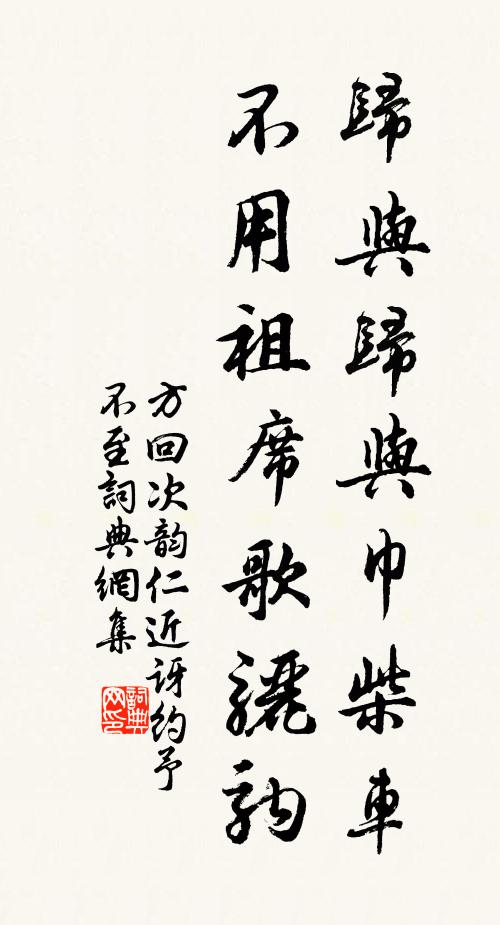 歸與歸與巾柴車
不用祖席歌驪駒
方回次韵仁近訝約予
不至詞典網集
詞典网印